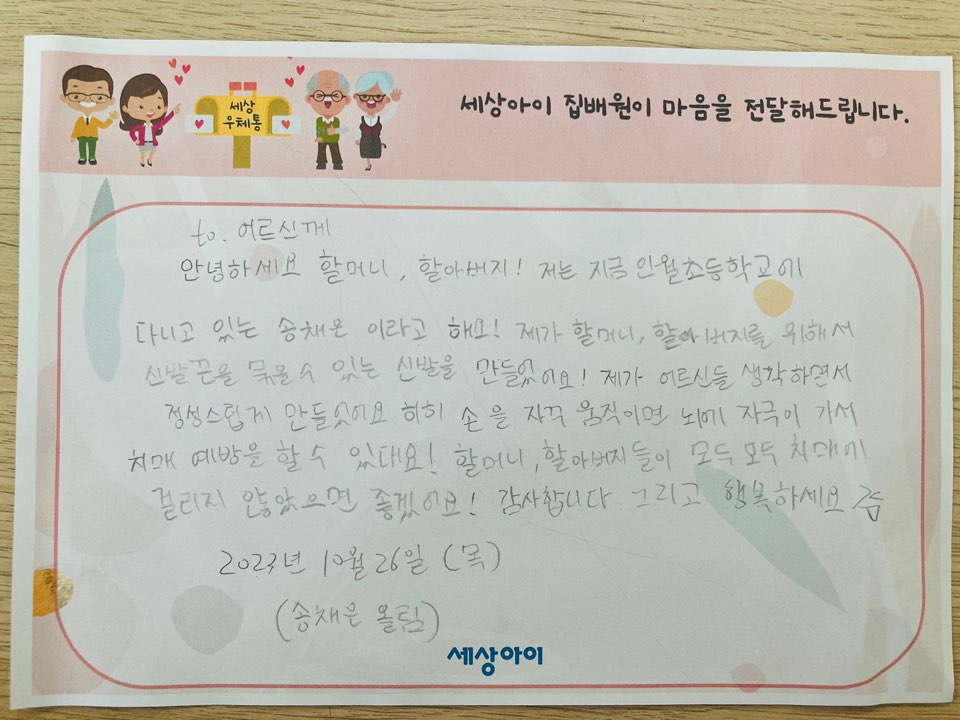 세상
우체통
세상아이 집배원이 마음을 전달해드립니다.
to. 어르신께
안녕하세요 할머니, 할아버지! 저는 지금 인월초등학교에
다니고 있는 송채은 이라고 해요! 제가 할머니, 할아버지를 위해서
신발끈을 묶을 수 있는 신발을 만들었어요! 제가 어르신들 생각하면서
정성스럽게 만들었어요 히히 손을 자꾸 움직이면 뇌에 자극이 가서
치매 예방을 할 수 있대요! 할머니, 할아버지들이 모두 모두 치매에
걸리지 않았으면 좋겠어요! 감사합니다 그리고 행복하세요
2023년 10월 26일 (목)
(송채은 올림)
세상아이